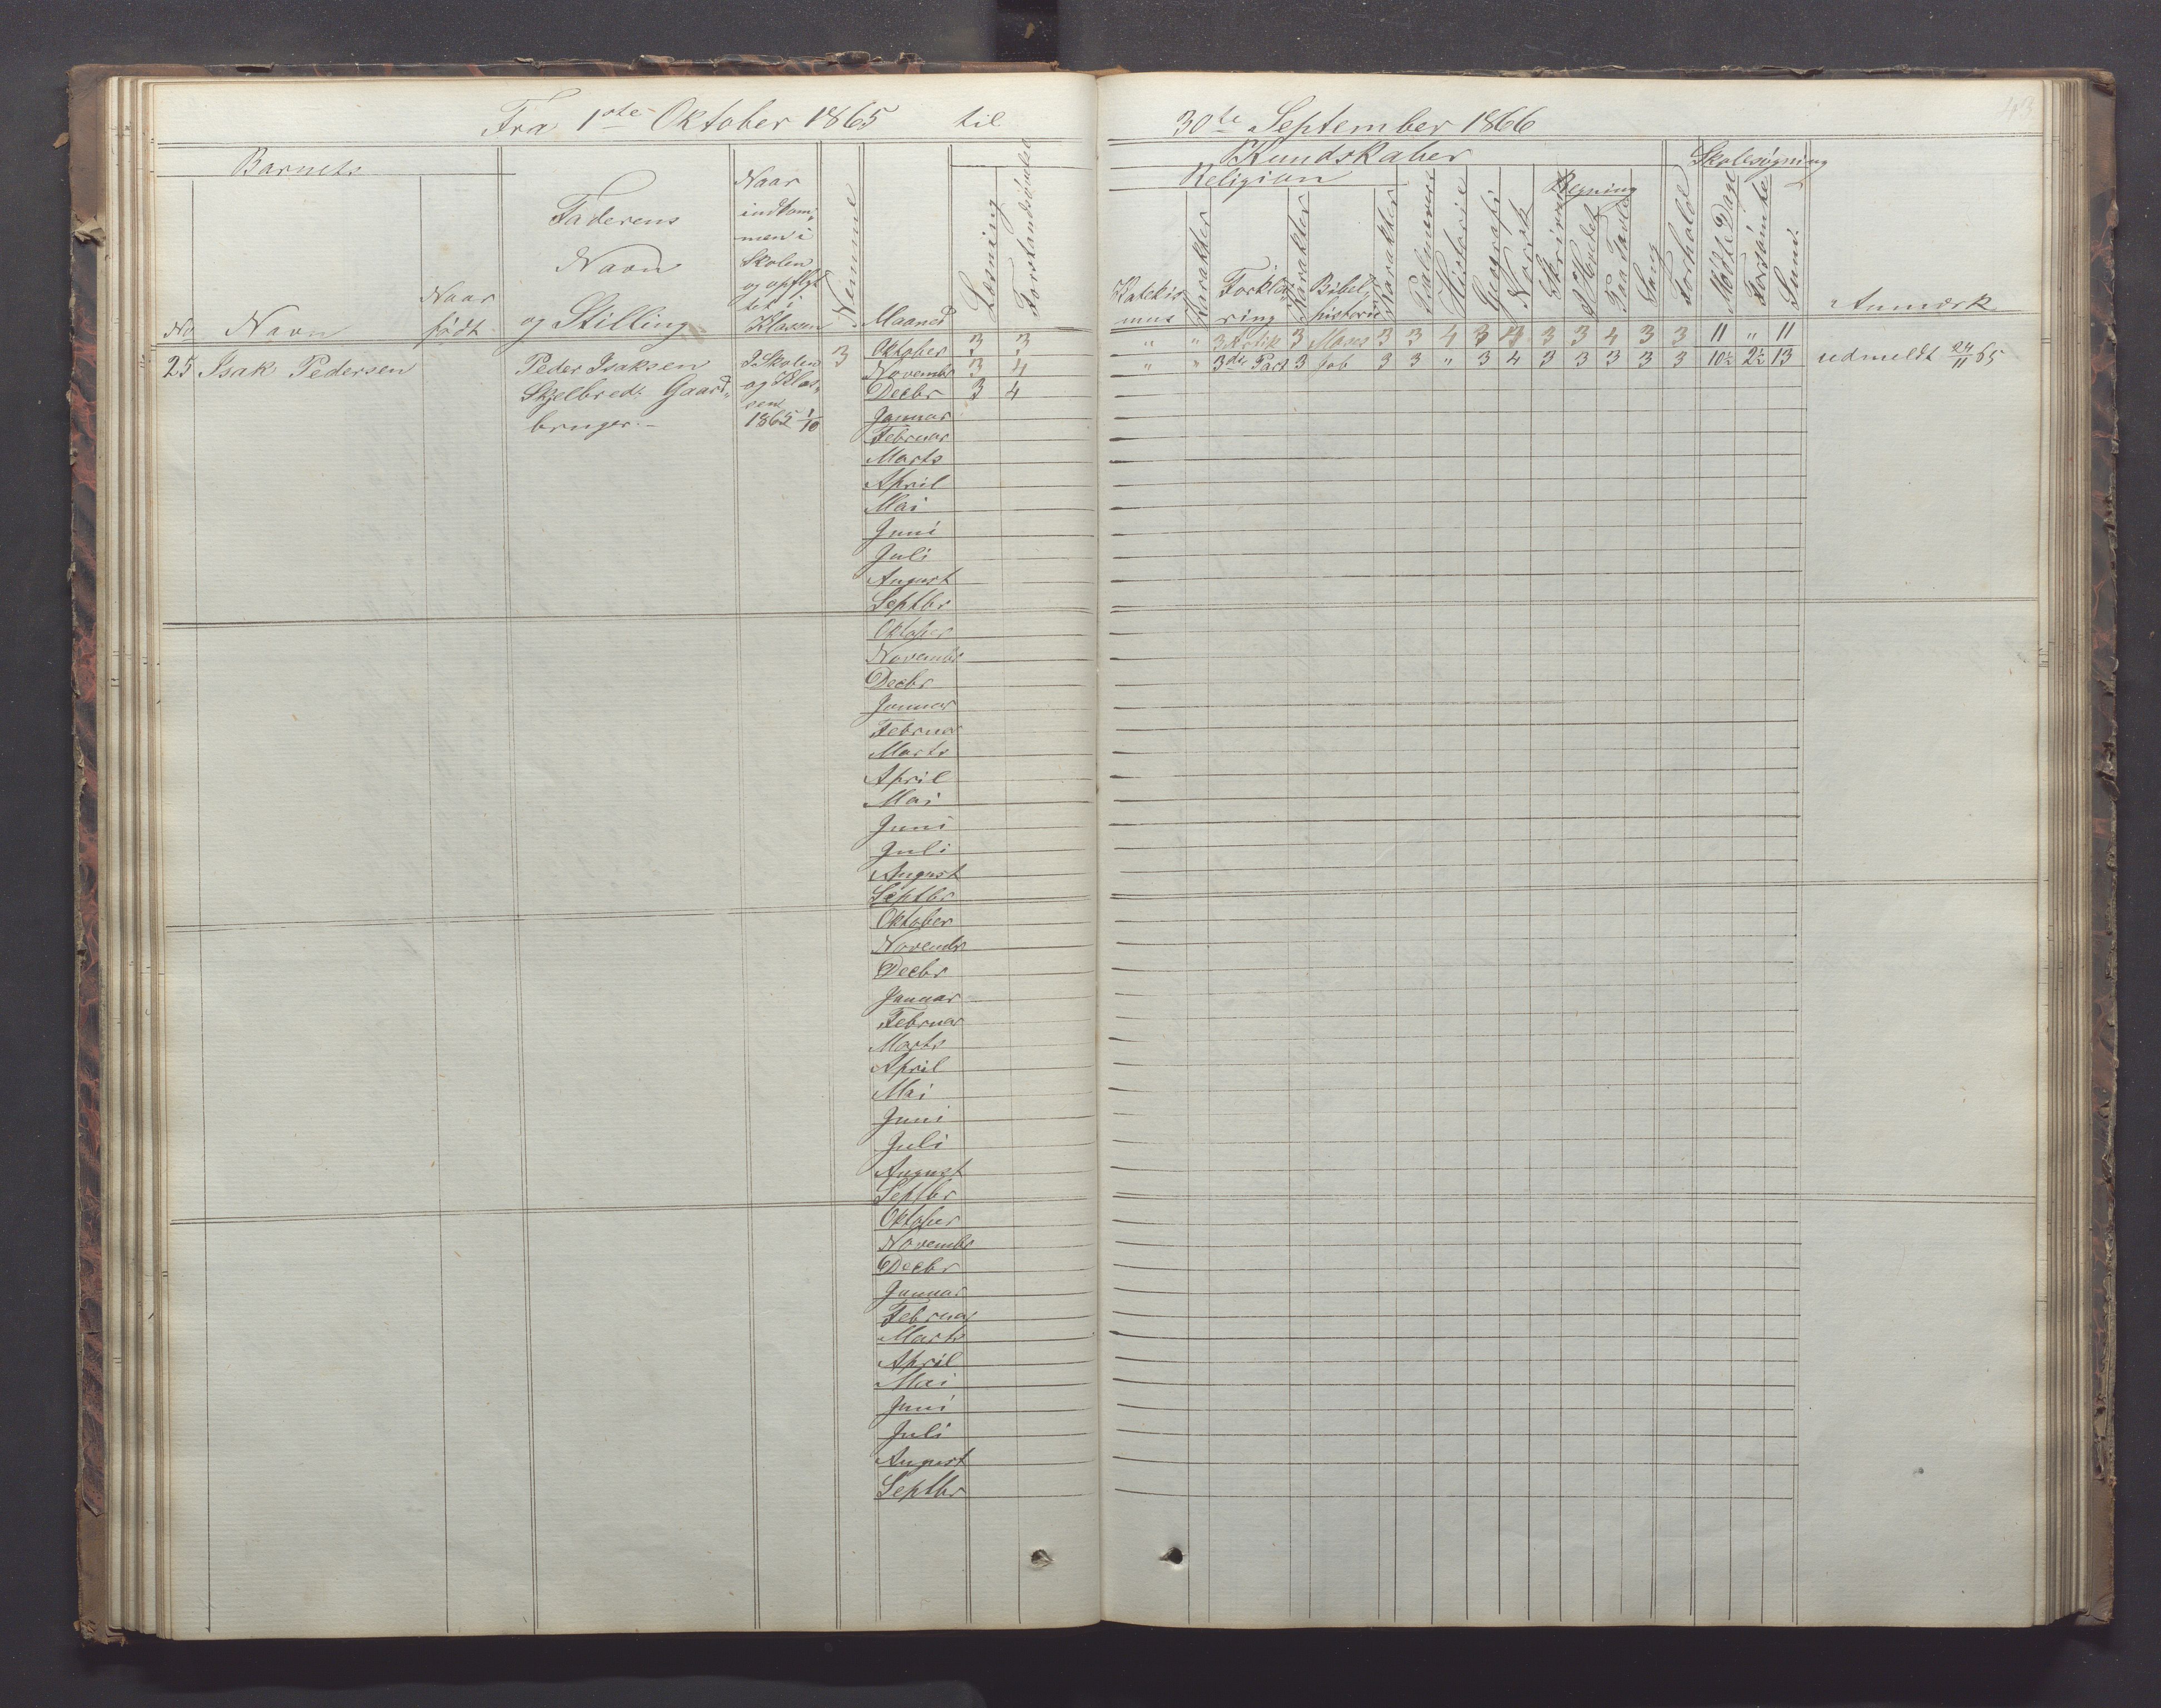 Fra 1ste Oktober 1865 til
30te September 1866
Barnets
No
Navn
Naar
født
Faderens
Navn
og Stilling
Naar
indkom-
men i
Skolen
og opflyt
tet i
Klassen
Nemme
Maaned
Læsning
Forstandsøvelse
Kundskaber
Religion
Katekis
mus
Karakter
Forkla
ring
Karakter
Bibel-
historie
Karakter
Psalmevers
Historie
Geografi
Norsk
Skrivning
Regning
I Hovedet
Paa Tavle
Sang
Forhold
Skolesøgning
Mødte Dage
Forsømte
Sum
Anmærk
25 Isak Pedersen
Peder Isaksen
Skjelbred: Gaard-
bruger. -
I Skolen
og Klas-
sen
1865 1/10
3
Oktober 3 3 " " 3 Artik 3 Moses 3 3 4 3 3 3 3 4 3 3 11 " 11
Novembr 3 4 " " 3die Part 3 Job 3 3 " 3 4 3 3 3 3 3 10½ 2½ 13 udmeldt 24/11 65
Decbr 3 4
Januar
Februar
Marts
April
Mai
Juni
Juli
August
Septbr
Oktober
Novembr
Decbr
Januar
Februar
Marts
April
Mai
Juni
Juli
August
Septbr
Oktober
Novembr
Decbr
Januar
Februar
Marts
April
Mai
Juni
Juli
August
Septbr
Oktober
Novembr
Decbr
Januar
Februar
Marts
April
Mai
Juni
Juli
August
Septbr